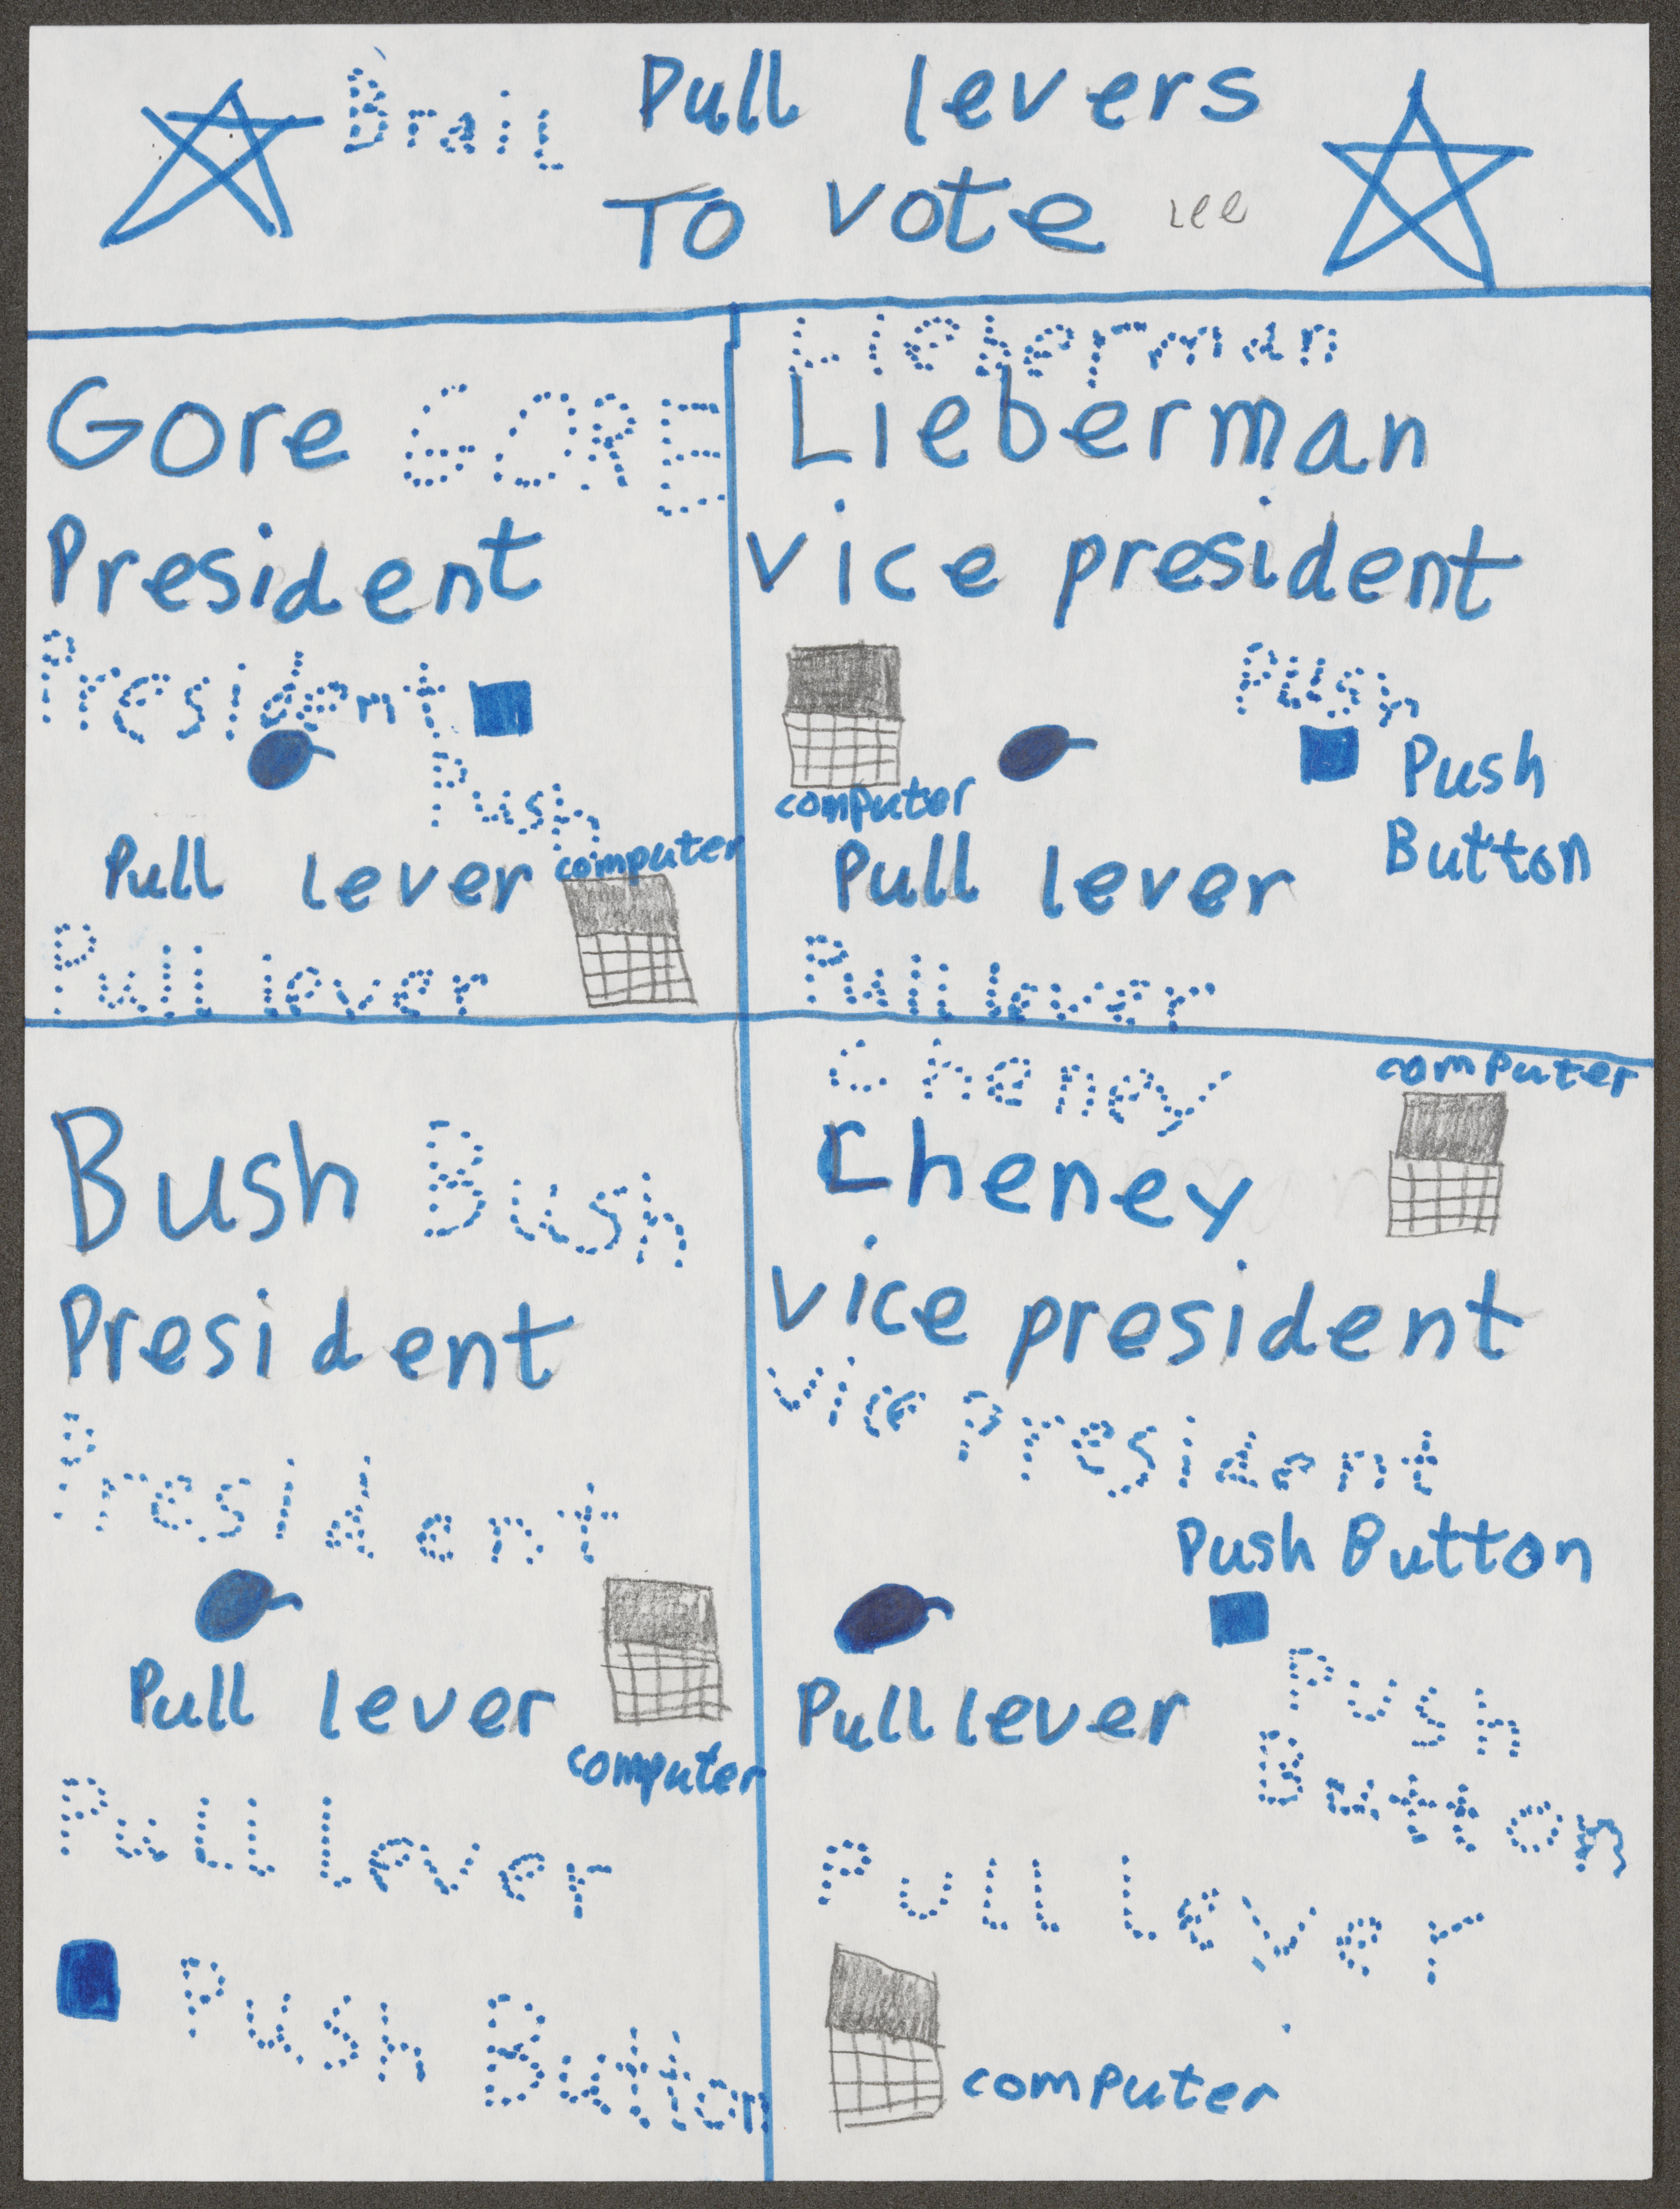 Brail
Pull levers
To vote
Lee
Gore GORE
President
President
Push
Pull lever
computer
Pull lever
Lieberman
Lieberman
vice president
Push
Push
Button
computer
Pull lever
Pull lever
Bush Bush
President
President
Pull lever
computer
Pull lever
Push Button
Cheney
computer
Cheney
vice president
vice president
Push Button
Pull lever
Push
Button
Pull lever
computer